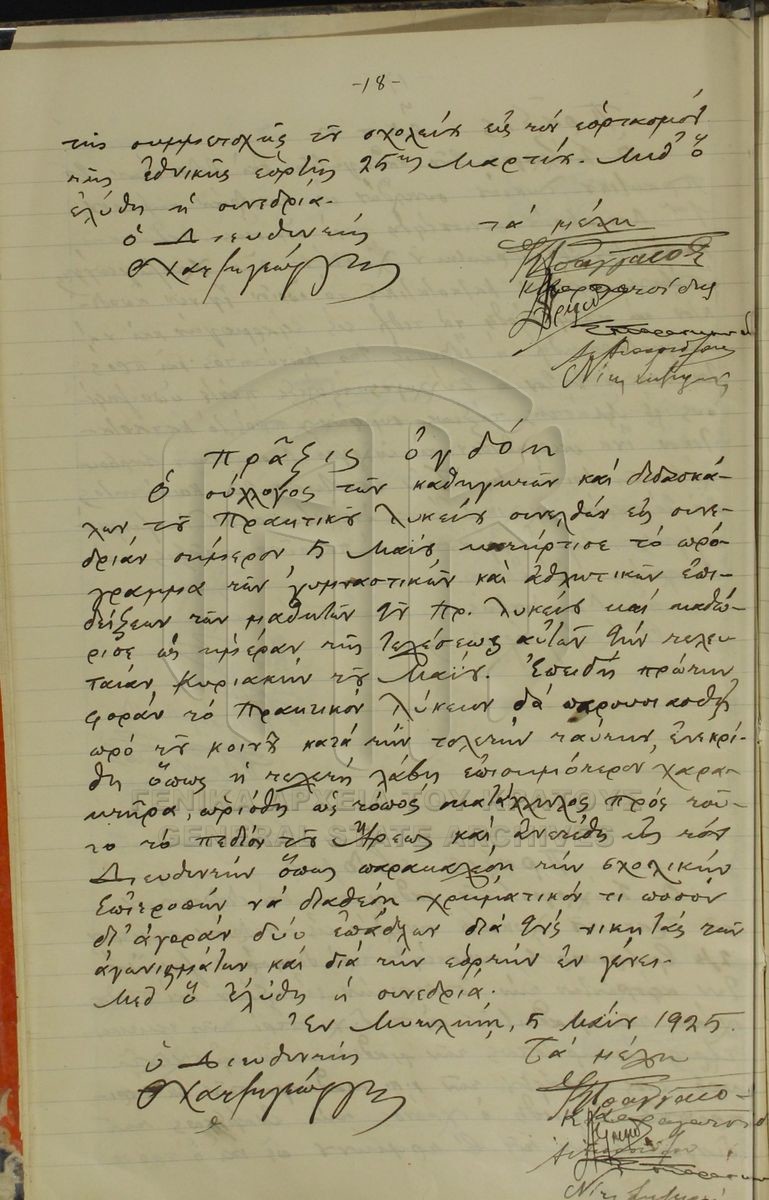 -18-
τῆς συμμετοχῆς τοῦ σχολείου εἰς τὸν ἑορτασμὸν
τῆς ἐθνικῆς ἑορτῆς 25ης Μαρτίου. Μεθ' ὃ
ἐλύθη ἡ συνεδρία.
ὁ Διευθυντής
Τὰ μέλη
Χατζηγεώργης
Πρᾶξις ὀγδόη
Ὁ σύλλογος τῶν καθηγητῶν καὶ διδασκά-
λων τοῦ Πρακτικοῦ Λυκείου συνελθὼν εἰς συνε-
δρίαν σήμερον 5 Μαΐου κατήρτισε τὸ πρό-
γραμμα τῶν γυμναστικῶν καὶ ἀθλητικῶν ἐπι-
δείξεων τῶν μαθητῶν τοῦ Πρ. Λυκείου καὶ καθώ-
ρισε ὡς ἡμέραν τῆς τελέσεως αὐτῶν τὴν τελευ-
ταίαν Κυριακὴν τοῦ Μαΐου. Ἐπειδὴ πρώτην
φορὰν τὸ Πρακτικὸν Λύκειον θὰ παρουσιασθῇ
πρὸ τοῦ κοινοῦ κατὰ τὴν τελετὴν ταύτην, ἐνεκρί-
θη ὅπως ἡ τελετὴ λάβῃ ἐπισημότερον χαρα-
κτῆρα, ὡρίσθη ὡς τόπος κατάλληλος πρὸς τοῦ-
το τὸ πεδίον τοῦ Ἄρεως καὶ ἀνετέθη εἰς τὸν
Διευθυντὴν ὅπως παρακαλέσῃ τὴν σχολικὴν
Ἐπιτροπὴν νὰ διαθέσῃ χρηματικόν τι ποσὸν
δι' ἀγορὰν δύο ἐπάθλων διὰ τοὺς νικητὰς τῶν
ἀγωνισμάτων καὶ διὰ τὴν ἑορτὴν ἐν γένει.
Μεθ' ὃ ἐλύθη ἡ συνεδρία.
Ἐν Μυτιλήνῃ, 5 Μαΐου 1925.
ὁ Διευθυντής
Τὰ μέλη
Χατζηγεώργης
ΓΕΝΙΚΑ ΑΡΧΕΙΑ ΤΟΥ ΚΡΑΤΟΥΣ
GENERAL STATE ARCHIVES